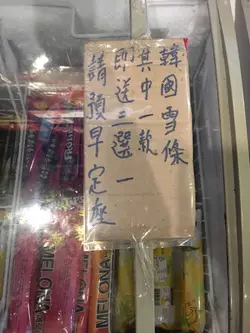 韓國雪條
其中一款
即送三選一
請預早定座
MELONA
MELONA